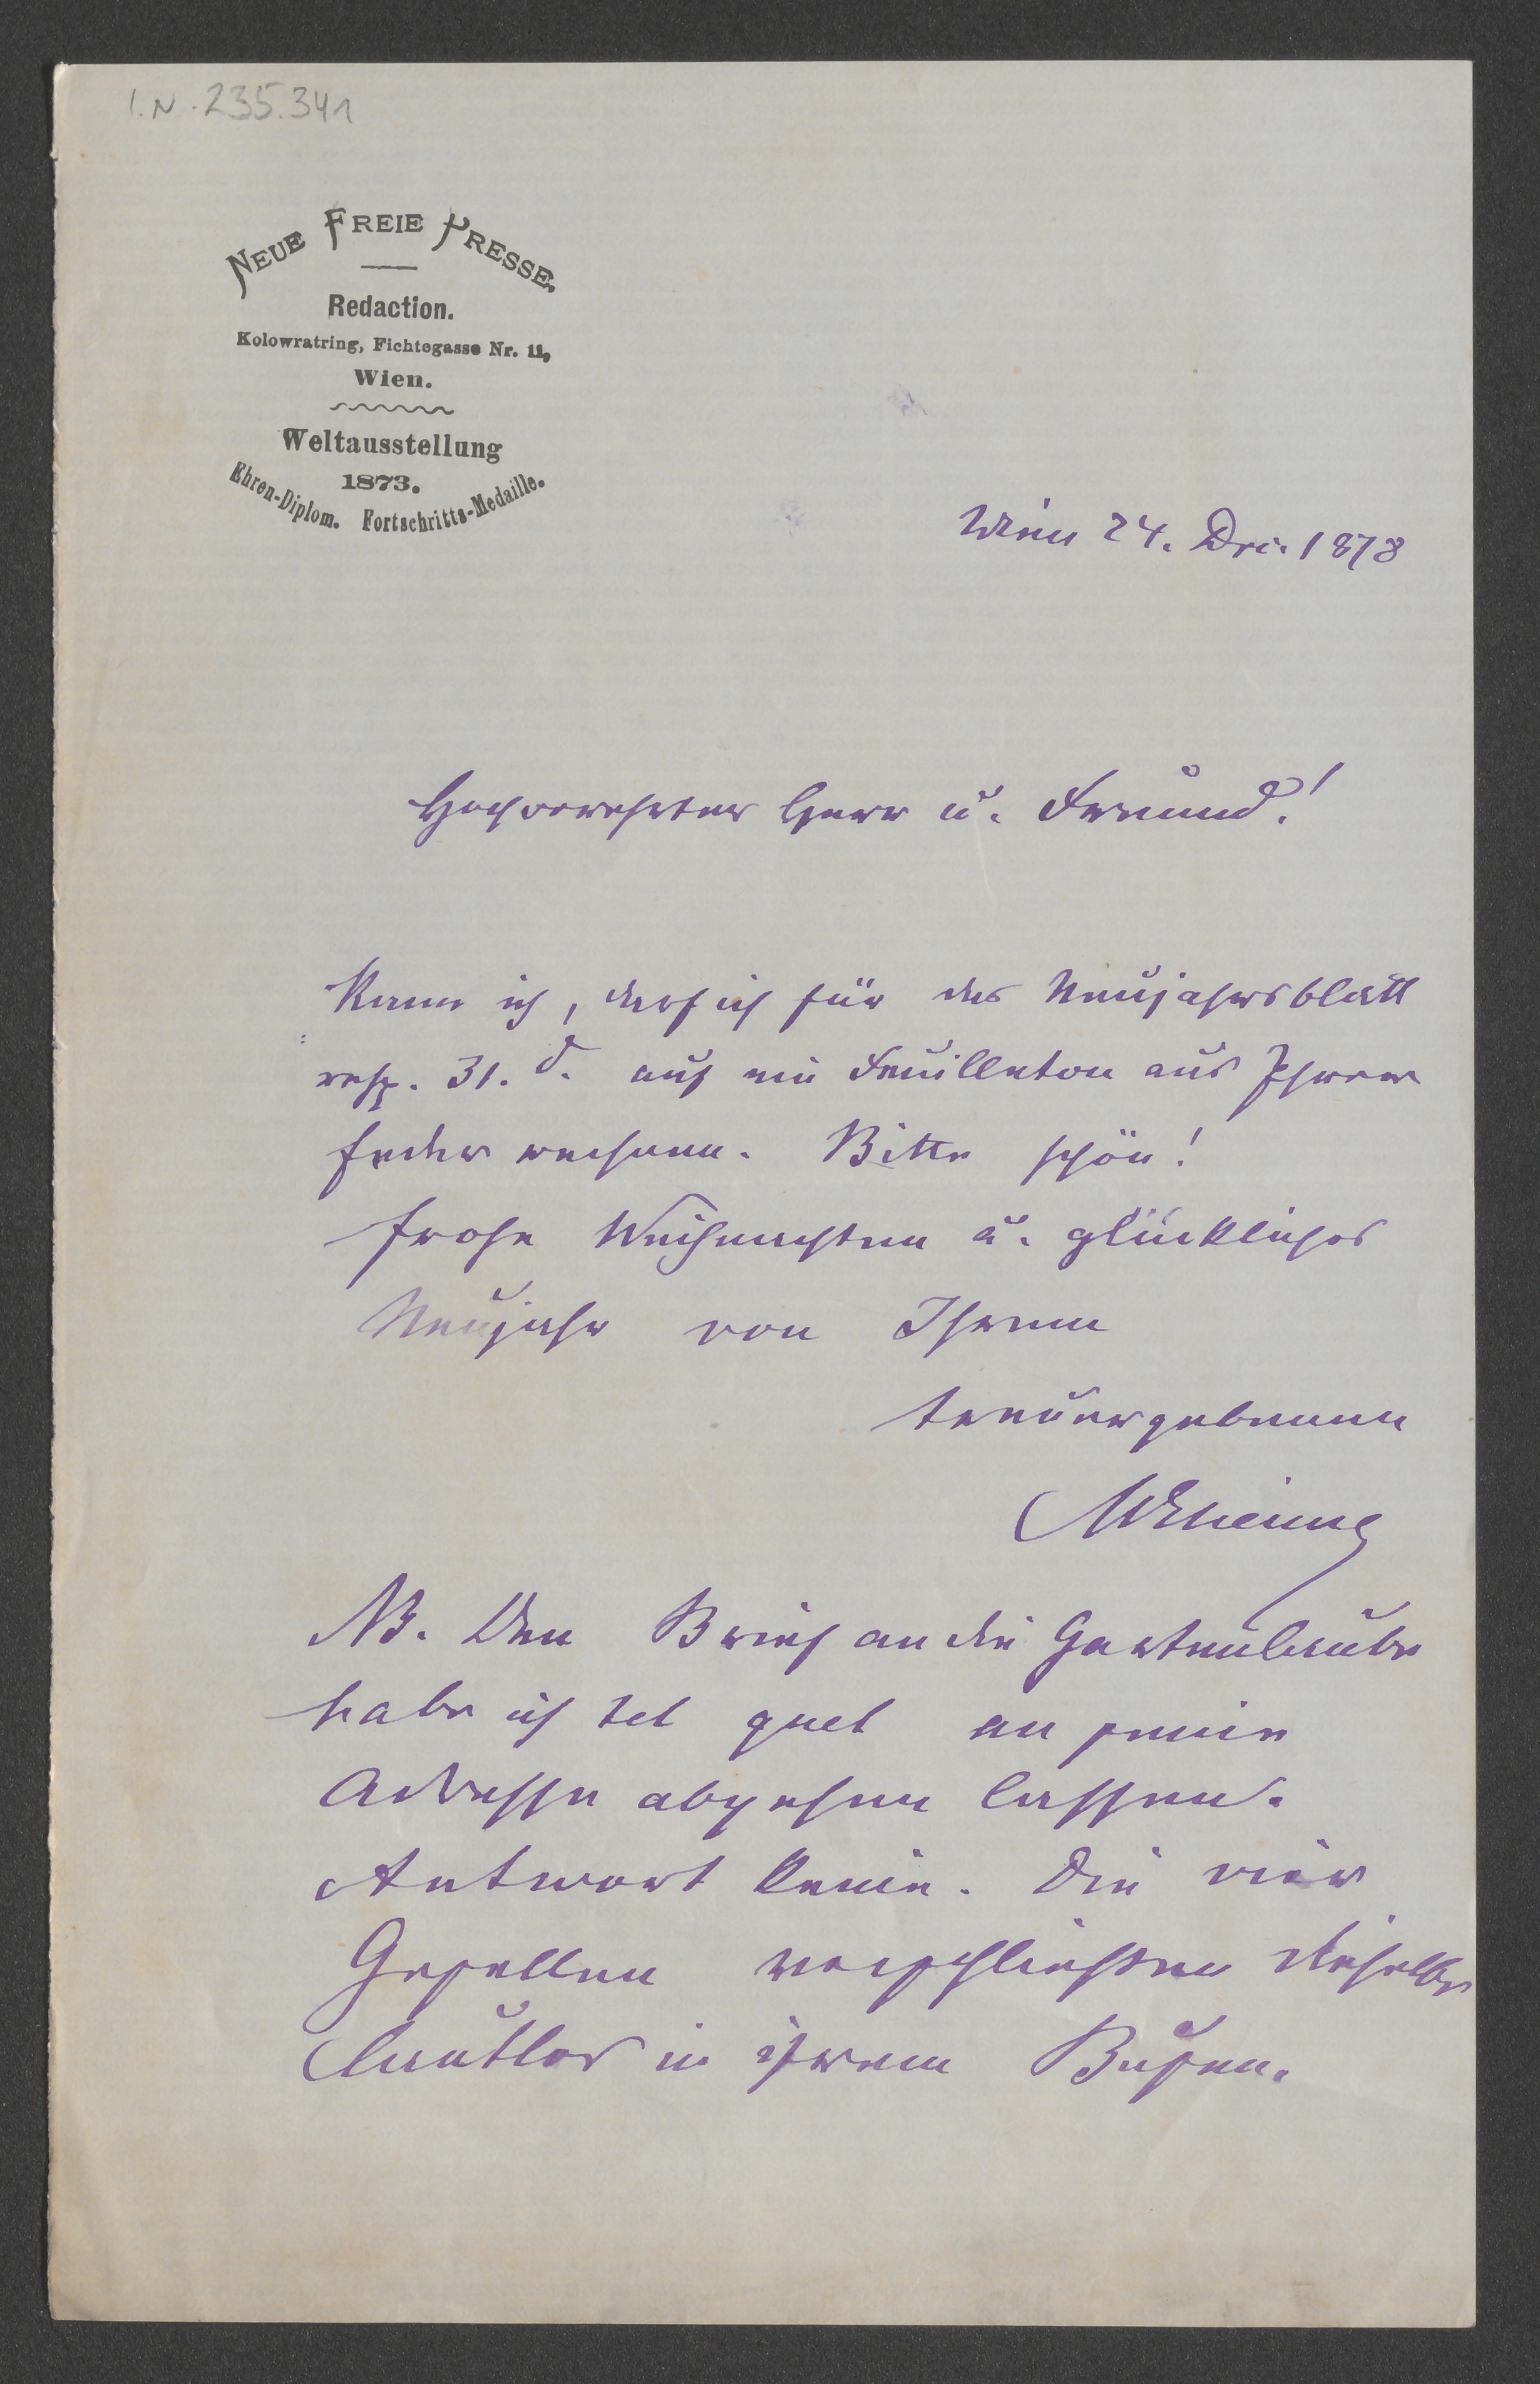 I.N. 235.341
NEUE FREIE PRESSE.
Redaction.
Kolowratring, Fichtegasse Nr. 11,
Wien.
Weltausstellung
1873.
Ehren-Diplom. Fortschritts-Medaille.
Wien 24. Dec. 1878
Hochverehrter Herr u. Freund!
Kann ich, darf ich für das Neujahrsblatt
resp. 31. d. auf ein Feuilleton aus Ihrer
Feder rechnen. Bitte schön!
Frohe Weihnachten u. glückliches
Neujahr von Ihrem
treuergebenen
NB. Den Brief an die Gartenlaube
habe ich tel quel an seine
Adresse abgehen lassen.
Antwort keine. Die vier
Gesellen verschließen dieselbe
lautlos in ihrem Busen.